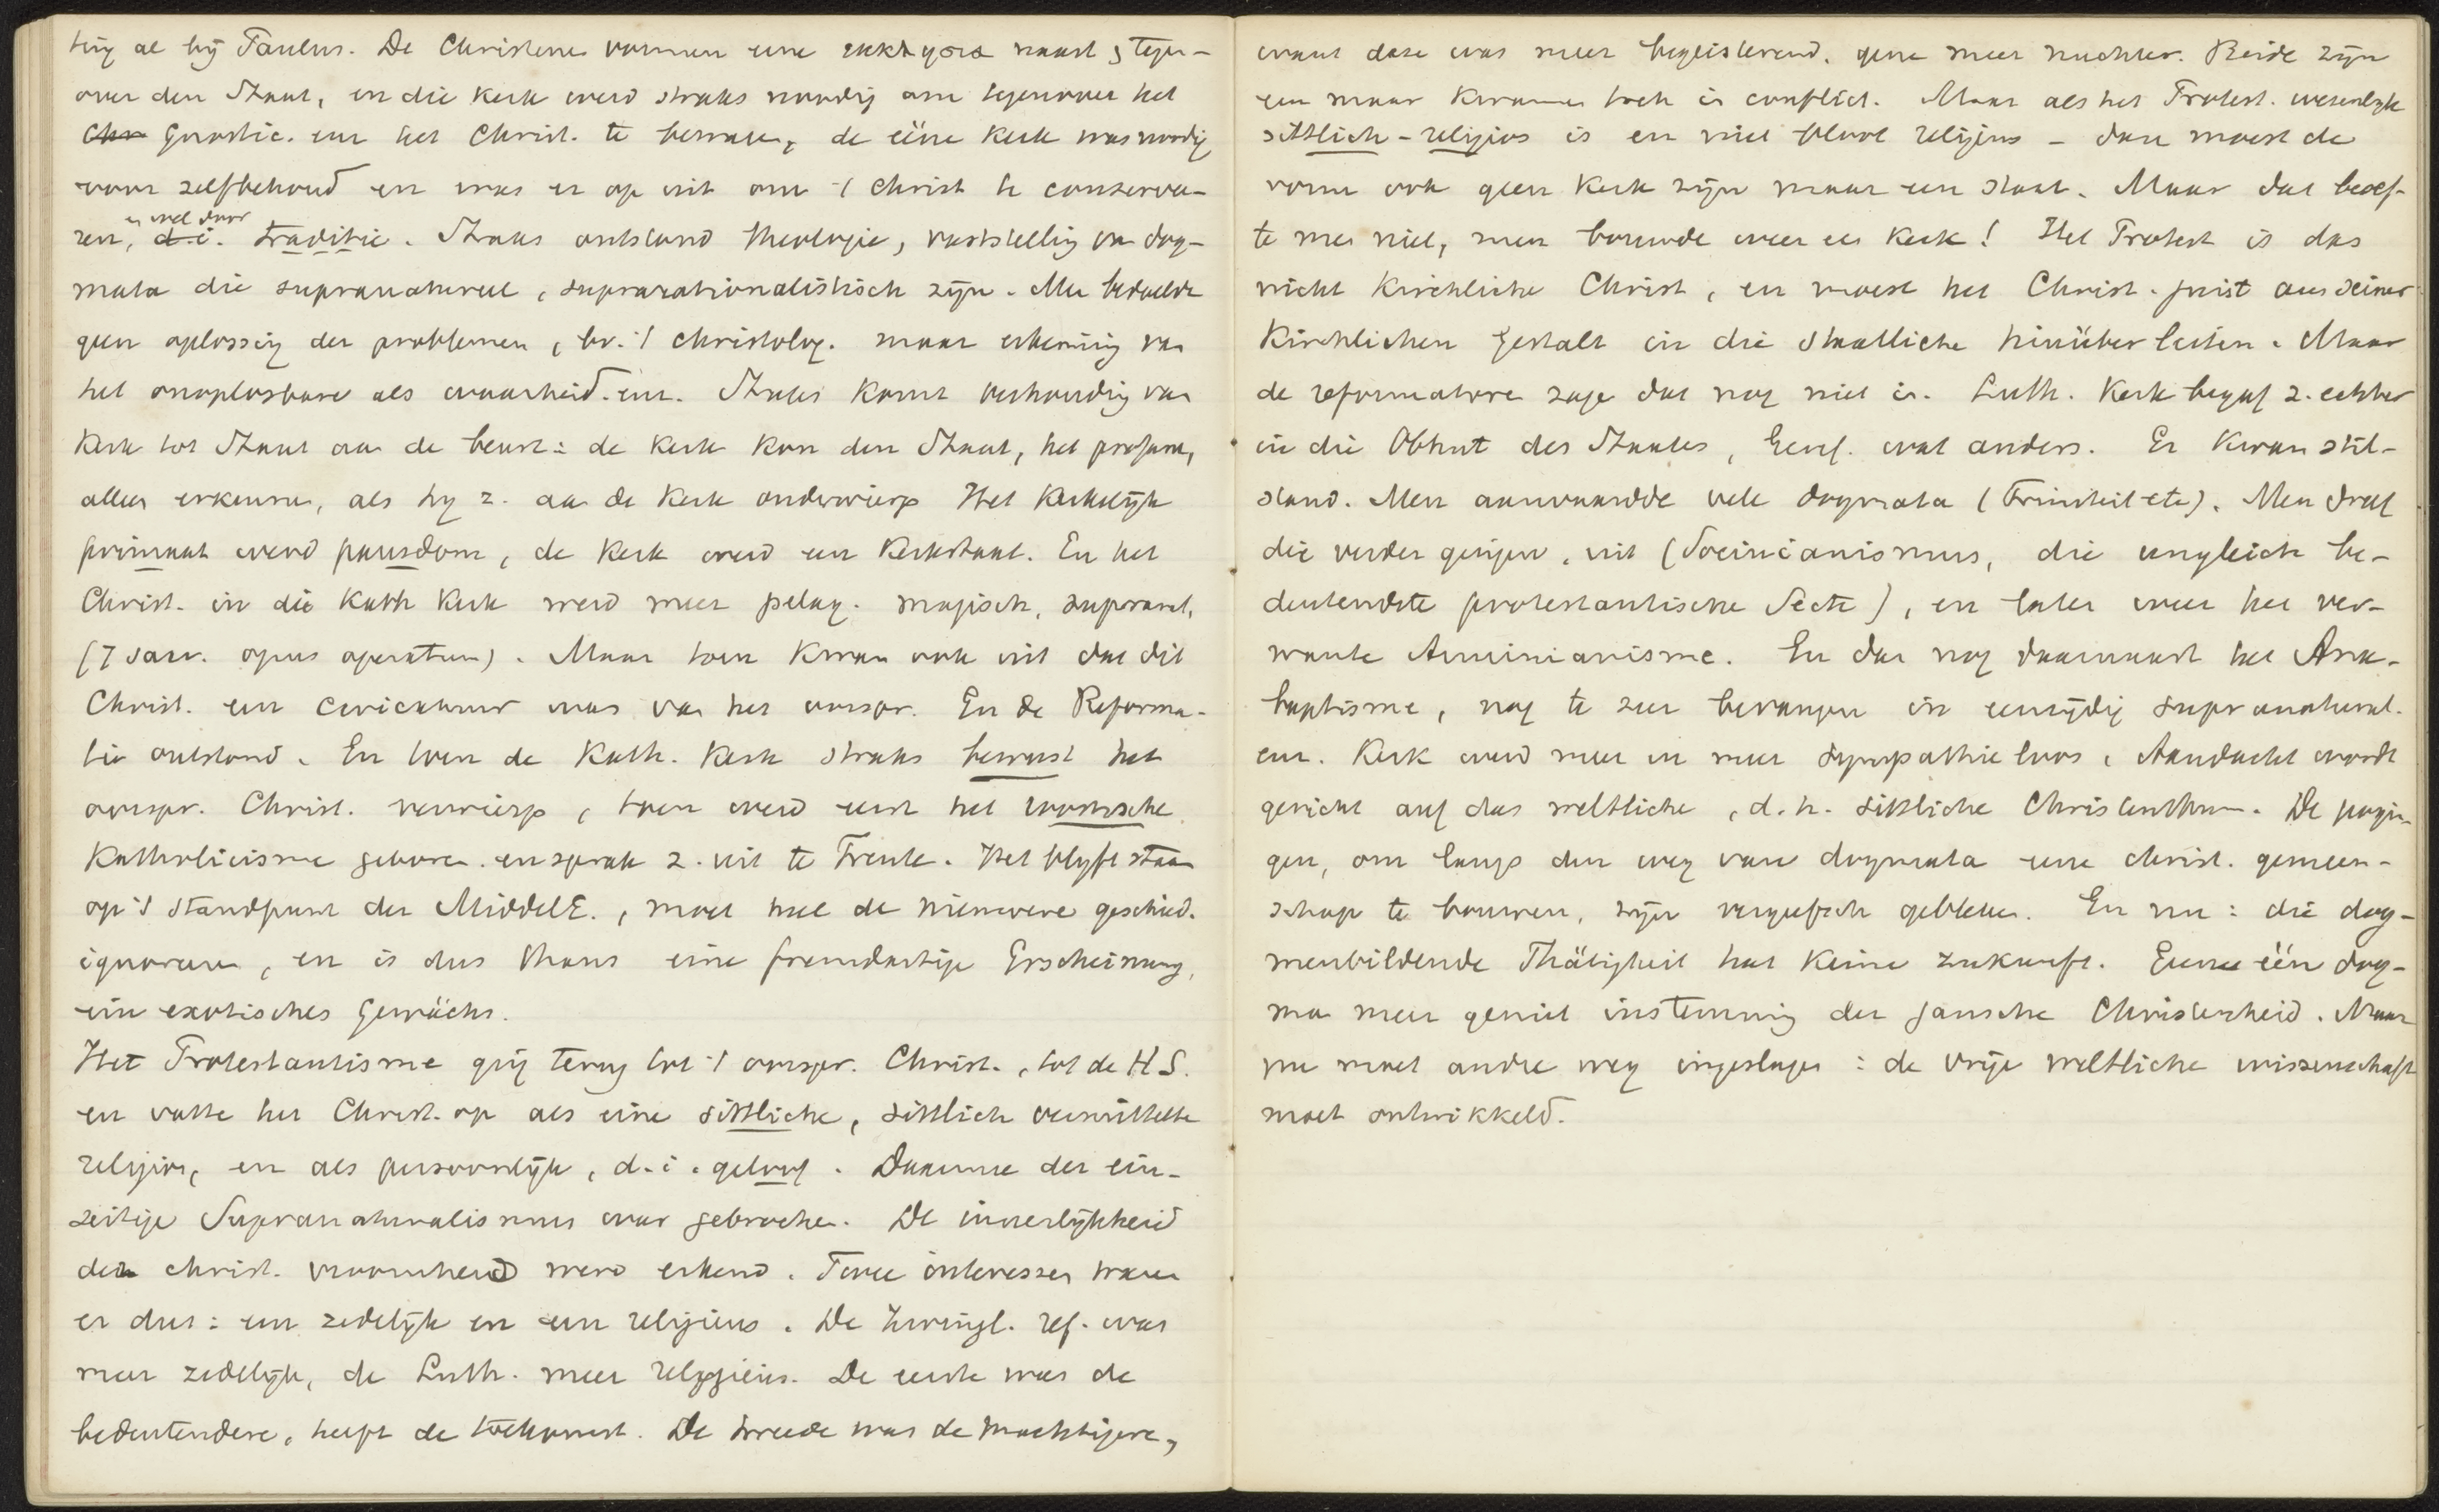 ting al bij Paulus. De Christenen vormen eene naast, tegen-
over den Staat, en die Kerk werd straks noodig om tegenover het
Chr Gnostic. enz het Christ. te bewaren, de ééne Kerk was noodig
voor zelfbehoud en was er op uit om 't Christ te conserve-
en wel door
ren, d.i. traditie. Straks ontstond theologie, vaststelling van dog-
mata die supranatureel, suprarationalistisch zijn. Men bedoelde
geen oplossing der problemen, bv. 't christolog. maar erkenning van
het onoplosbare als waarheid. enz. Straks komt verhouding van
Kerk tot Staat aan de beurt: de Kerk kon den Staat, het profane,
alles erkennen, als hij z. aan de Kerk onderwierp Het Kerkelijk
primaat werd pausdom, de Kerk werd een Kerkstaat. En het
Christ. in die Kath Kerk werd meer pelag. magisch, supranat.
(7 sacr. opus operatum). Maar toen kwam ook uit dat dit
Christ. een caricatuur was van het oorspr. En de Reforma-
tie ontstond. En toen de Kath. Kerk straks bewust het
oorspr. Christ. verwierp, toen werd eerst het roomsche
Katholicisme geboren. en sprak z. uit te Trente. Het blijft staan
op 't standpunt der MiddelE., moet heel de nieuwere geschied.
ignoreren, en is dus thans eine fremdartige Erscheinung,
ein exotisches Gewächs.
Het Protestantisme ging terug tot 't oorspr. Christ., tot de H S.
en vatte het Christ. op als eine sittliche, sittlich vermittelte
religion, en als persoonlijk, d.i. geloof. Daarmee der ein-
zeitige Supranaturalismus war gebrochen. De innerlijkheid
der christ. vroomheid werd erkend. Twee interessen waren
er dus: een zedelijk en een religieus. De Zwingl. ref. was
meer zedelijk, de Luth. meer religieus. De eerste was de
bedeutendere, heeft de toekomst. De tweede was de machtigere,
want deze was meer begeisterend, gene meer nuchter. Beide zijn
een maar kwamen toch in conflict. Maar als het Protest. wesenlijk
sittlich-religios is en niet bloot religieus - dan moest de
vorm ook geen Kerk zijn maar een staat. Maar dat besef-
te men niet, men bouwde weer een Kerk! Het Protest is das
nicht Kirchliche Christ, en moest het Christ. juist aus seiner
Kirchlichen Gestalt in die staatliche hinüber leiten. Maar
de reformatoren zagen dat nog niet in. Luth. Kerk begaf z. echter
in die Obhut des Staates, Geref. wat anders. Er kwam stil-
stand. Men aanvaardde vele dogmata (Triniteit etc). Men dreef
die verder gingen, uit (Socinianismus, die ungleich be-
deutendste protestantische Secte), en later weer het ver-
wante Arminianisme. En dan nog daarnaast het Ana-
baptisme, nog te zeer bevangen in eenzijdig supranatural.
enz. Kerk werd meer en meer sympathieloos, Aandacht wordt
gericht auf das weltliche, d.h. sittliche Christenthum. De pogin-
gen, om langs den weg van dogmata eene christ. gemeen-
schap te bouwen, zijn vergeefsch gebleken. En nu: die dog-
menbildende Thätigheit hat Keine Zukunft. Geen één dog-
ma meer geniet instemming der gansche Christenheid. Maar
nu moet andre weg ingeslagen: de vrije weltliche wissenschaft
moet ontwikkeld.